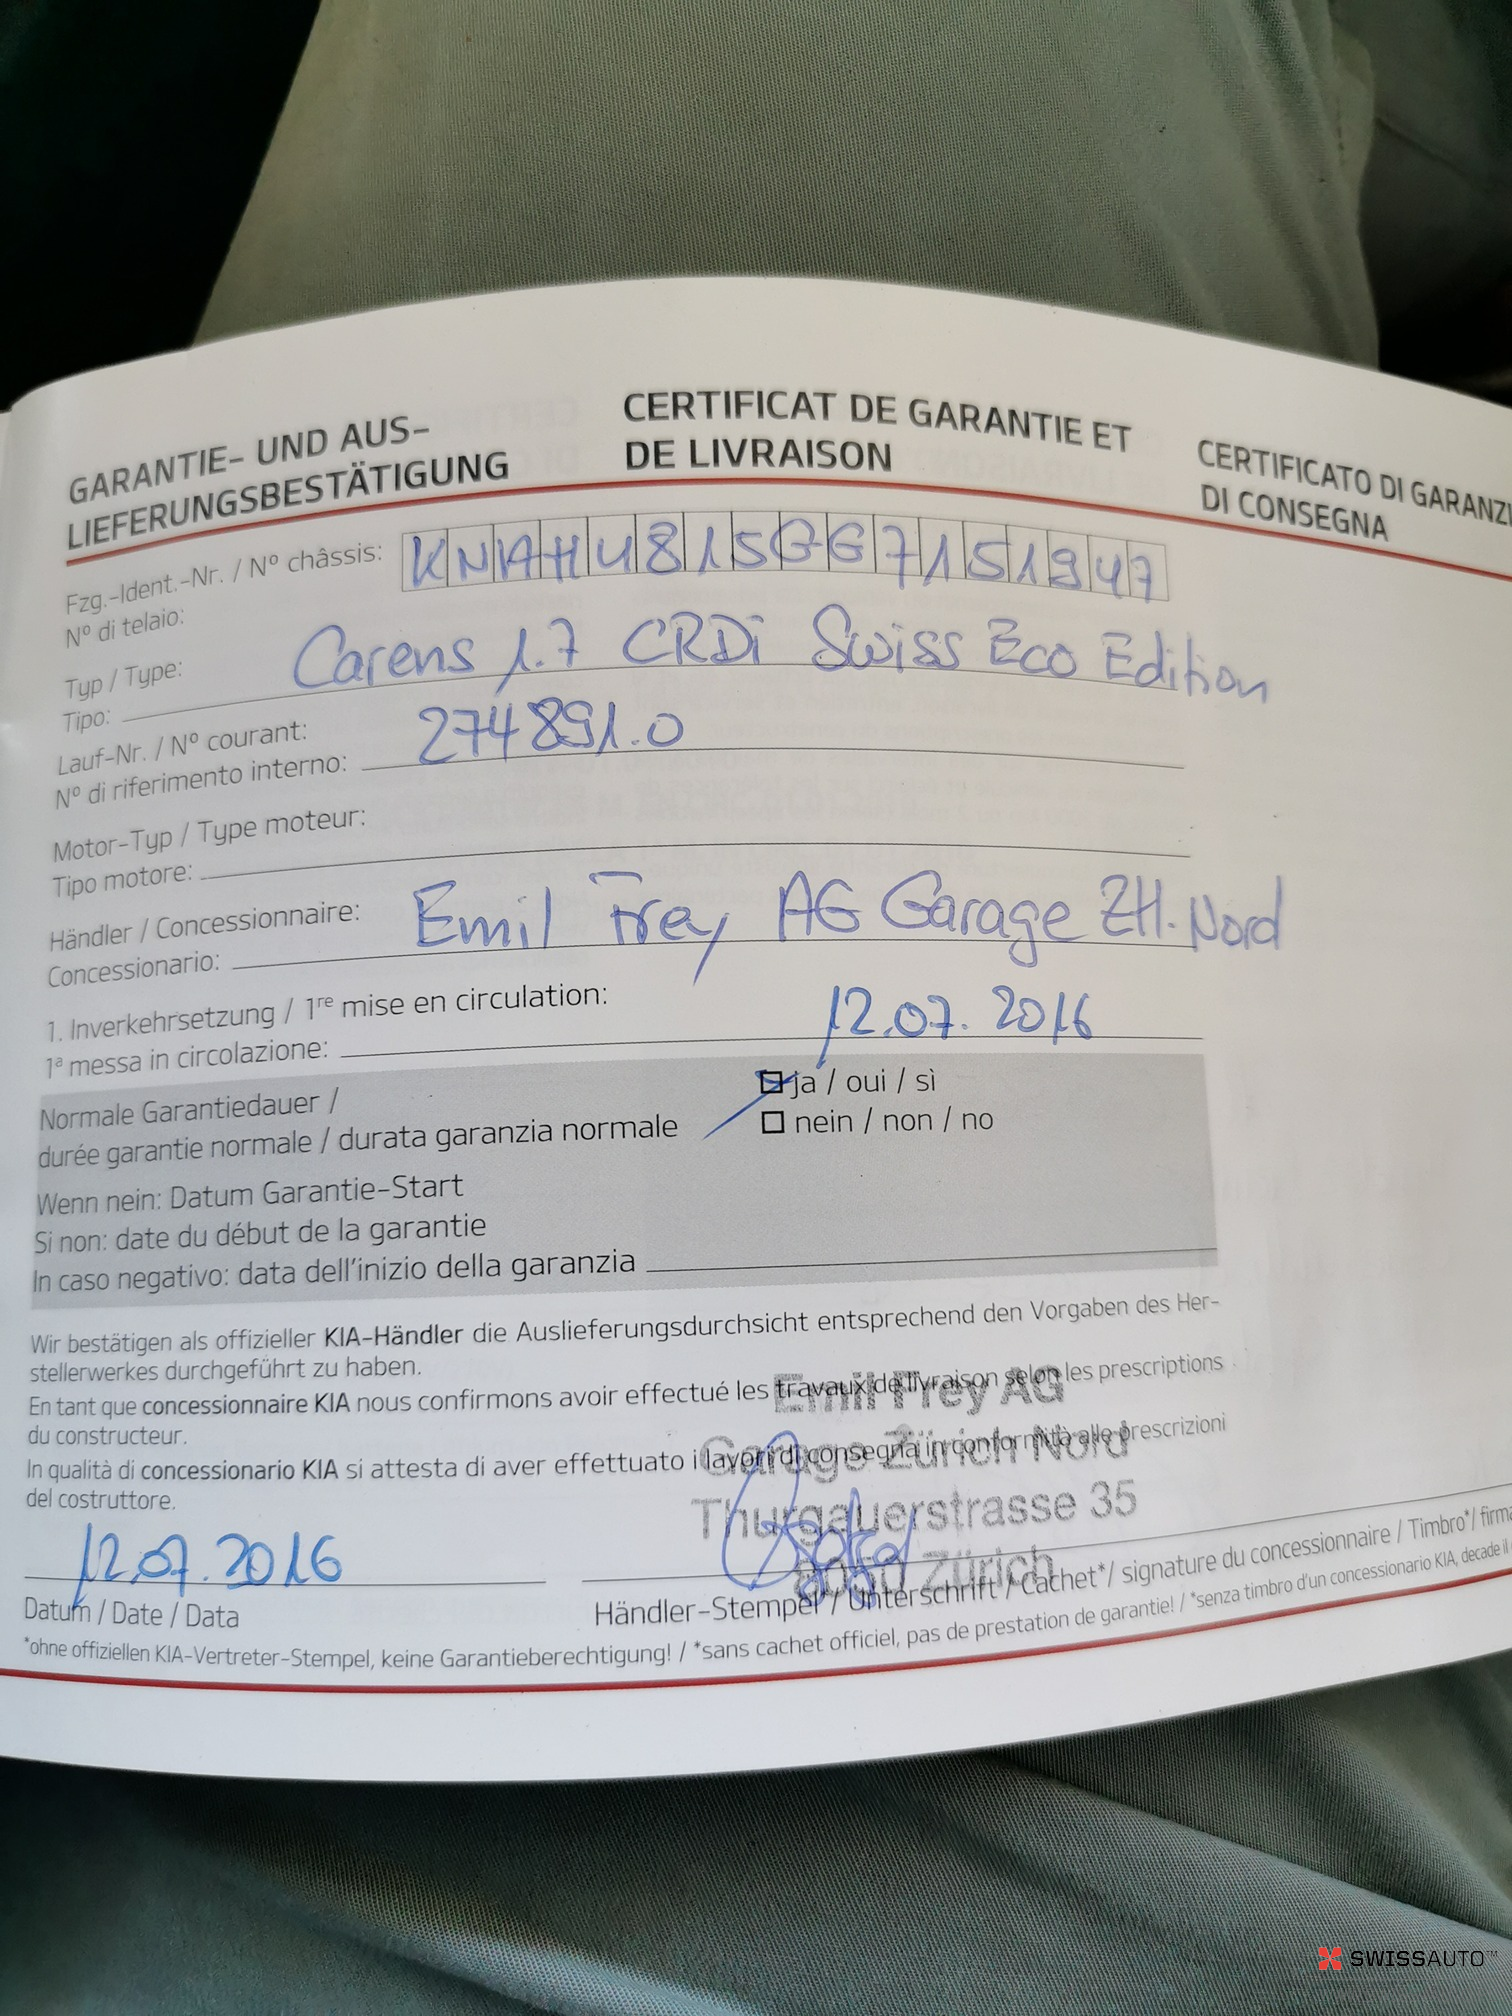 GARANTIE- UND AUS-
LIEFERUNGSBESTÄTIGUNG
CERTIFICAT DE GARANTIE ET
DE LIVRAISON
CERTIFICATO DI GARANZI
DI CONSEGNA
Fzg.-Ident.-Nr. / Nº châssis: KNAHU815GG7151947
Nº di telaio:
Typ / Type: Carens 1.7 CRDi Swiss Eco Edition
Tipo:
Lauf-Nr. / Nº courant: 274891.0
Nº di riferimento interno:
Motor-Typ / Type moteur:
Tipo motore:
Händler / Concessionnaire: Emil Frey AG Garage ZH. Nord
Concessionario:
1. Inverkehrsetzung / 1re mise en circulation: 12.07.2016
1ª messa in circolazione:
Normale Garantiedauer / ja / oui / sì
durée garantie normale / durata garanzia normale nein / non / no
Wenn nein: Datum Garantie-Start
Si non: date du début de la garantie
In caso negativo: data dell'inizio della garanzia
Wir bestätigen als offizieller KIA-Händler die Auslieferungsdurchsicht entsprechend den Vorgaben des Her-
stellerwerkes durchgeführt zu haben.
En tant que concessionnaire KIA nous confirmons avoir effectué les travaux de livraison selon les prescriptions
du constructeur.
In qualità di concessionario KIA si attesta di aver effettuato i lavori di consegna in conformità alle prescrizioni
del costruttore.
Emil Frey AG
Garage Zürich Nord
Thurgauerstrasse 35
8050 Zürich
12.07.2016
Datum / Date / Data
Händler-Stempel / Unterschrift / Cachet*/ signature du concessionnaire / Timbro*/ firma
*ohne offiziellen KIA-Vertreter-Stempel, keine Garantieberechtigung! / *sans cachet officiel, pas de prestation de garantie! / *senza timbro d'un concessionario KIA, decade il
SWISSAUTO™